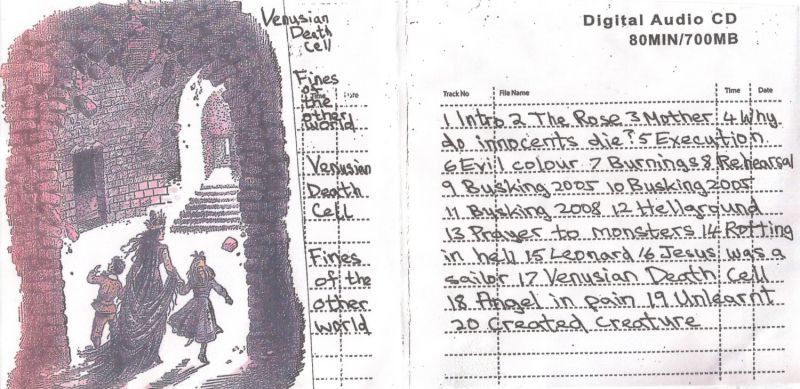 Venusian
Death
Cell
Fines
of
the
other
world
Venusian
Death
Cell
Fines
of the
other
world
Digital Audio CD
80MIN/700MB
Track No File Name Time Date
1 Intro 2 The Rose 3 Mother 4 Why
do innocents die? 5 Execution
6 Evil colour 7 Burnings 8 Rehearsal
9 Busking 2005 10 Busking 2005
11 Busking 2008 12 Hellground
13 Prayer to monsters 14 Rotting
in hell 15 Leonard 16 Jesus was a
sailor 17 Venusian Death Cell
18 Angel in pain 19 Unlearnt
20 Created Creature